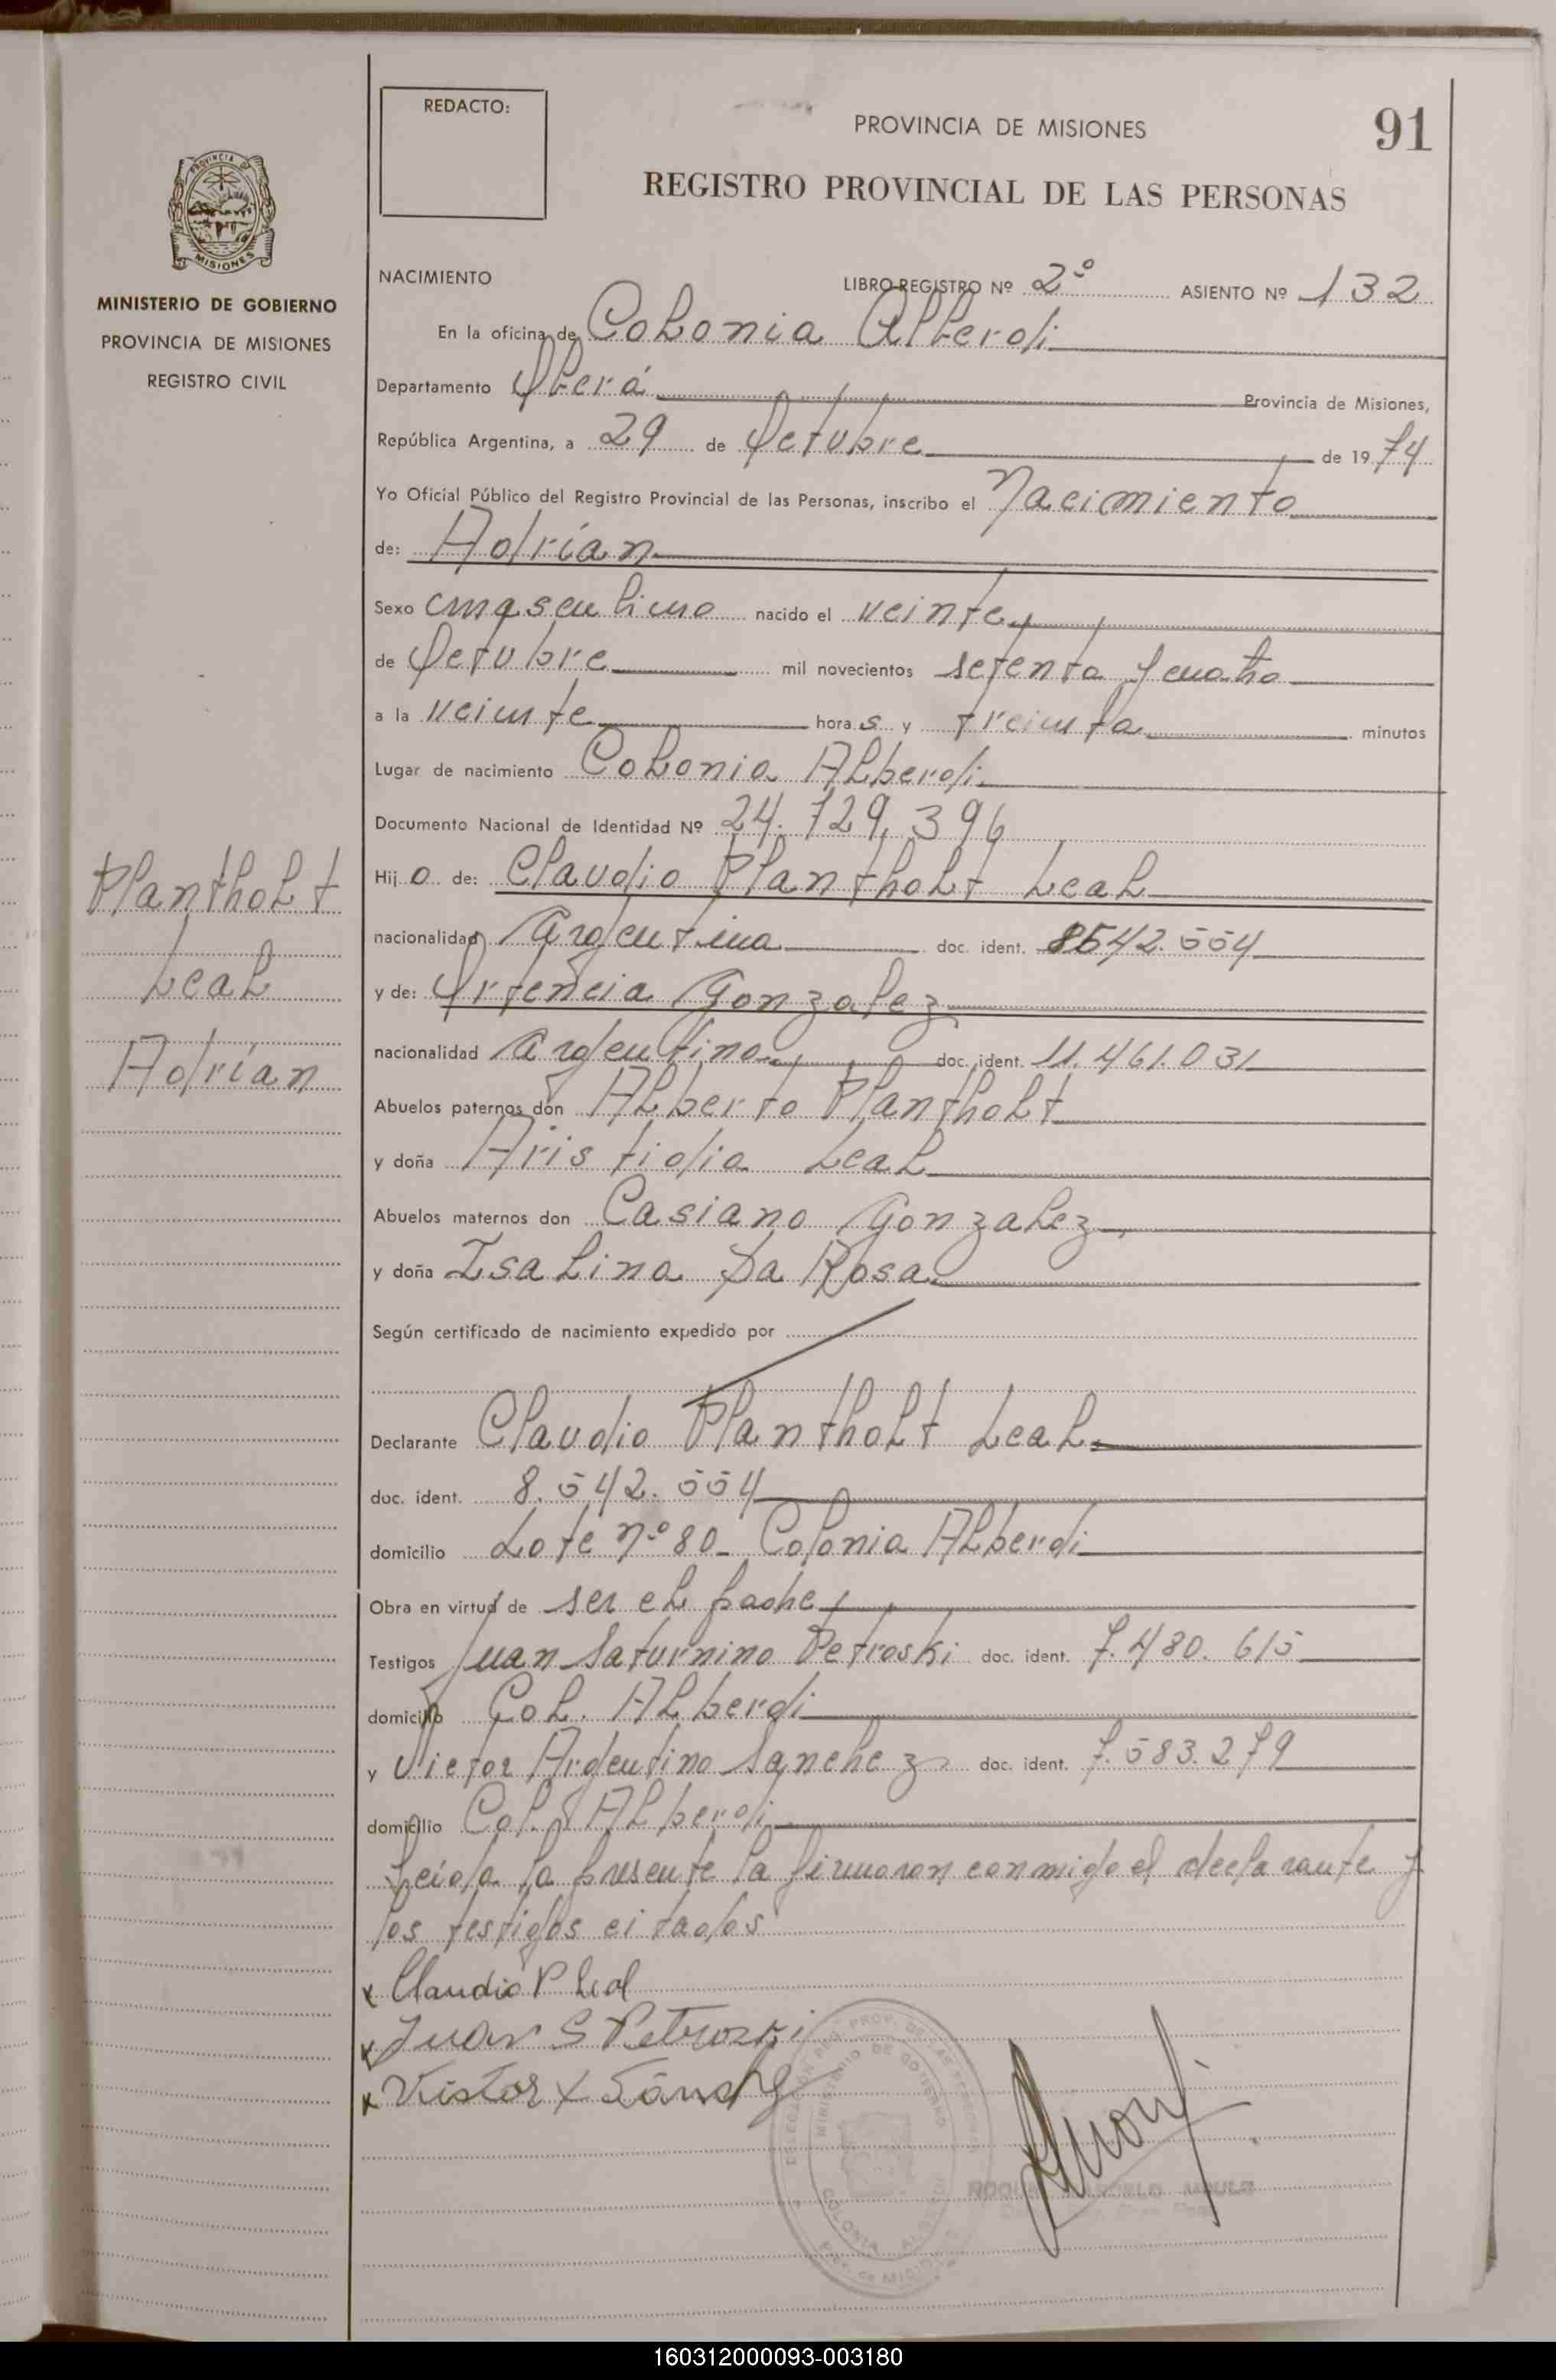 REDACTO:
PROVINCIA DE MISIONES
91
REGISTRO PROVINCIAL DE LAS PERSONAS
PROVINCIA DE
MISIONES
MINISTERIO DE GOBIERNO
PROVINCIA DE MISIONES
REGISTRO CIVIL
NACIMIENTO
LIBRO REGISTRO Nº 2º ASIENTO Nº 132
En la oficina de Colonia Alberdi
Departamento Oberá Provincia de Misiones,
República Argentina, a 29 de Octubre de 1974
Yo Oficial Público del Registro Provincial de las Personas, inscribo el Nacimiento
de: Adrían
Sexo masculino nacido el veinte
de Octubre mil novecientos setenta y cuatro
a la veinte hora s y treinta minutos
Lugar de nacimiento Colonia Alberdi
Documento Nacional de Identidad Nº 24.729.396
Hij o de: Claudio Plantholt Leal
nacionalidad Argentina doc. ident. 8542.554
y de: Ortencia Gonzalez
nacionalidad Argentina doc. ident. 11.461.031
Abuelos paternos don Alberto Plantholt
y doña Aristidia Leal
Abuelos maternos don Casiano Gonzalez
y doña Isalina Da Rosa
Según certificado de nacimiento expedido por
Declarante Claudio Plantholt Leal
doc. ident. 8.542.554
domicilio Lote Nº 80 - Colonia Alberdi
Obra en virtud de ser el padre
Testigos Juan Saturnino Petroski doc. ident. 7.480.615
domicilio Col. Alberdi
y Victor Argentino Sanchez doc. ident. 7.583.279
domicilio Col. Alberdi
Leida la presente la firmaron conmigo el declarante y
los testigos citados
x Claudio P Leal
x Juan S Petroski
x Victor
Plantholt
Leal
Adrían
MINISTERIO DE GOBIERNO
COLONIA ALBERDI
160312000093-003180